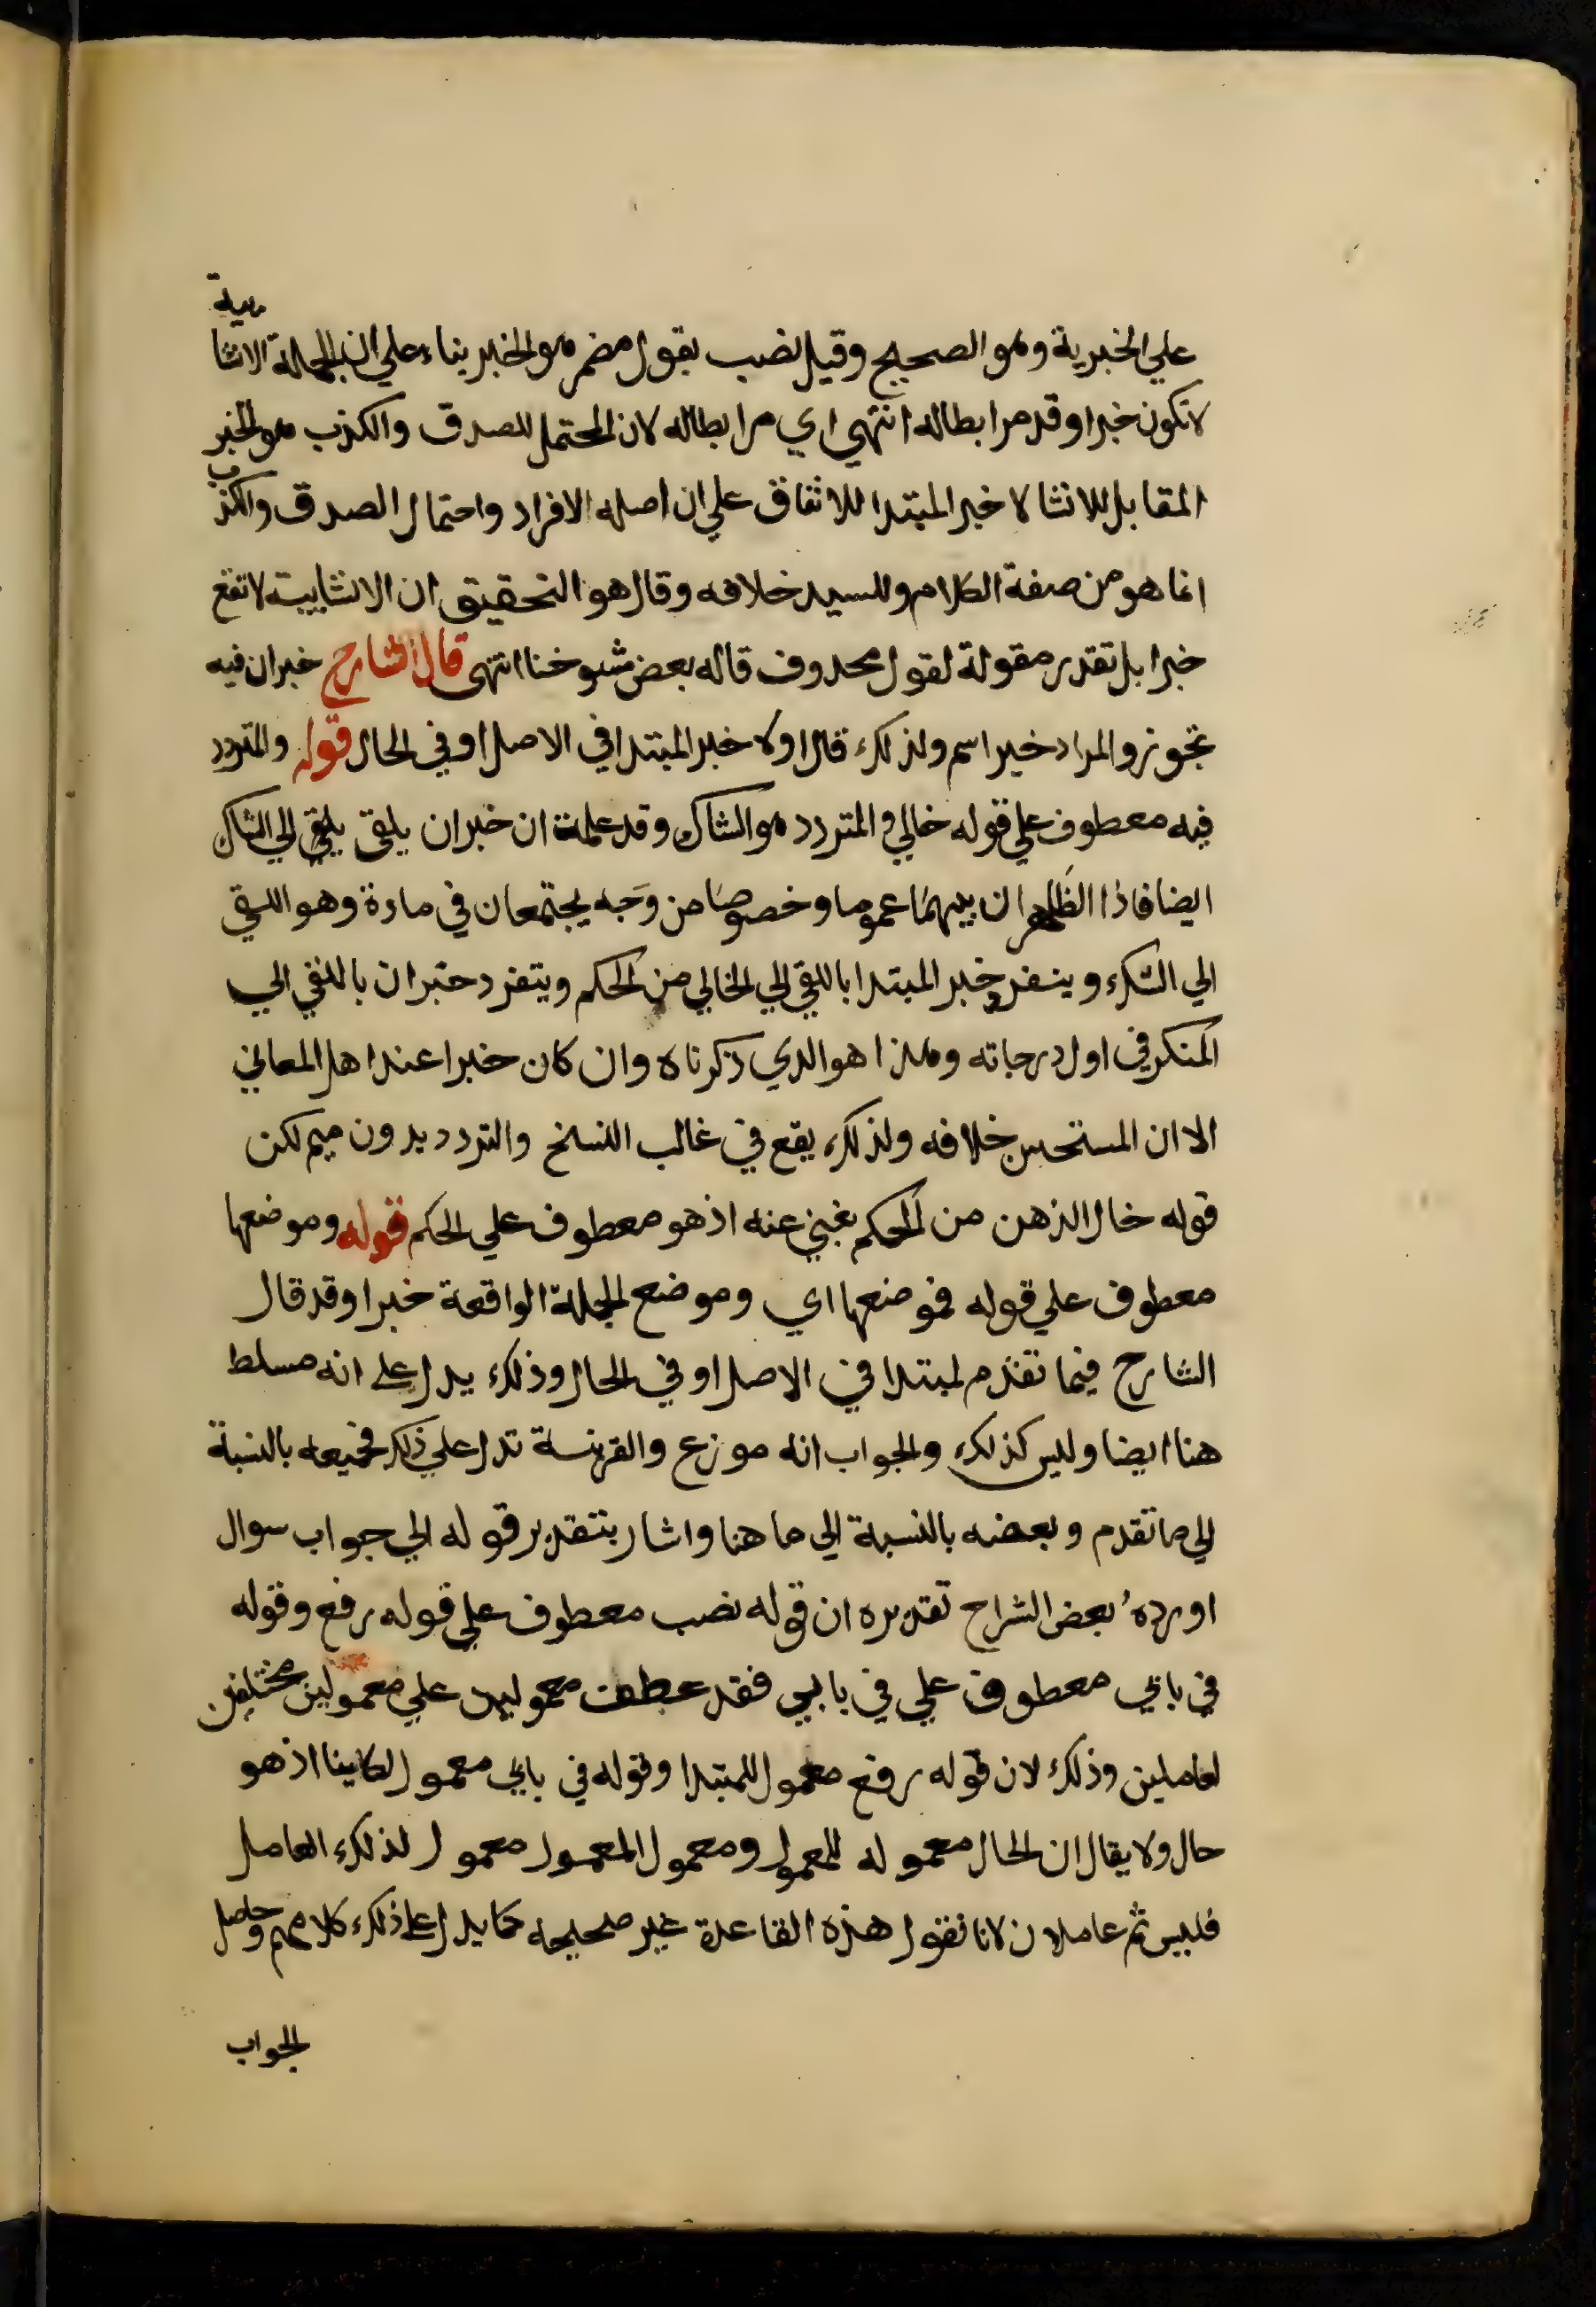 علي الخبرية وهو الصحيح وقيل نصب بقول مضمر هو الخبر بناء علي ان الجملة الانشايية
لا تكون خبرا وقد مر ابطاله انتهي اي مر ابطاله لان المحتمل للصدق والكذب هو الخبر
المقابل للانشا لا خبر المبتدا للاتفاق علي ان اصله الافراد واحتمال الصدق والكذب
انما هو من صفة الكلام وللسيد خلافه وقال هو التحقيق ان الانشايية لا تقع
خبرا بل تقدر مقولة لقول محدوف قاله بعض شيوخنا انتهى قال الشارح خبر ان فيه
تجوز والمراد خبر اسم ولذلك قال اولا خبر المبتدا في الاصل او في الحال قوله والمتردد
فيه معطوف علي قوله خالي والمتردد هو الشاك وقد علمت ان خبر ان يلقي يلقي الي الشاك
ايضا فاذا الظاهر ان بينهما عموما وخصوصا من وجه يجتمعان في مادة وهو اللقي
الي الشك وينفرد خبر المبتدا باللقي الي الخالي من الحكم ويتفرد خبر ان باللقي الي
المنكر في اول درجاته وهذا هو الدي ذكرناه وان كان خبرا عند اهل المعاني
الا ان المستحسن خلافه ولذلك يقع في غالب النسخ والتردد بدون ميم لكن
قوله خال الذهن من الحكم يغني عنه اذ هو معطوف علي الحكم قوله وموضعها
معطوف علي قوله فموضعها اي وموضع الجملة الواقعة خبرا وقد قال
الشارح فيما تقدم لمبتدا في الاصل او في الحال وذلك يدل على انه مسلط
هنا ايضا وليس كذلك والجواب انه موزع والقرينة تدل علي ذلك فجميعه بالنسبة
الي ما تقدم وبعضه بالنسبة الي ما هنا واشار بتقدير قوله الي جواب سوال
اورده بعض الشراح تقديره ان قوله نصب معطوف علي قوله رفع وقوله
في بابي معطوف علي في بابي فقد عطف معمولين علي معمولين مختلفين
لعاملين وذلك لان قوله رفع معمول للمبتدا وقوله في بابي معمول لكاينا اذ هو
حال ولا يقال ان الحال معموله للمعمول ومعمول المعمول معمول لذلك العامل
فليس ثم عاملان لانا نقول هذه القاعدة غير صحيحه كما يدل على ذلك كلامهم وحاصل
الجواب